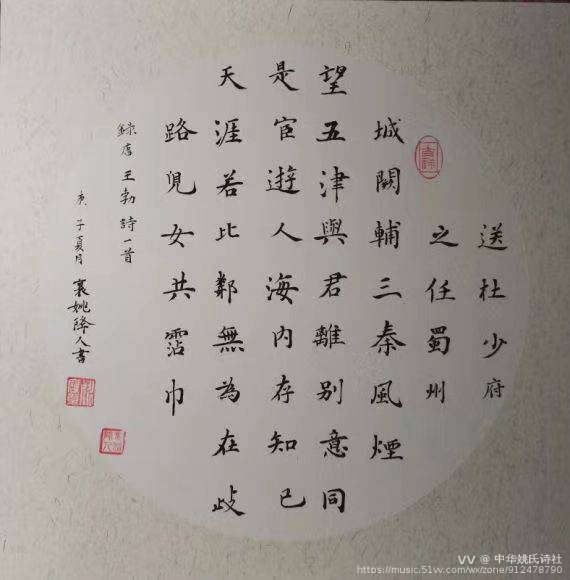 送杜少府
之任蜀州
城闕輔三秦風煙
望五津與君離别意同
是宦遊人海内存知已
天涯若比鄰無為在歧
路兒女共霑巾
錄唐王勃詩一首
庚子夏月襄姚人書
吉祥
VV @ 中华姚氏诗社
https://music.51vv.com/wx/zone/912478790